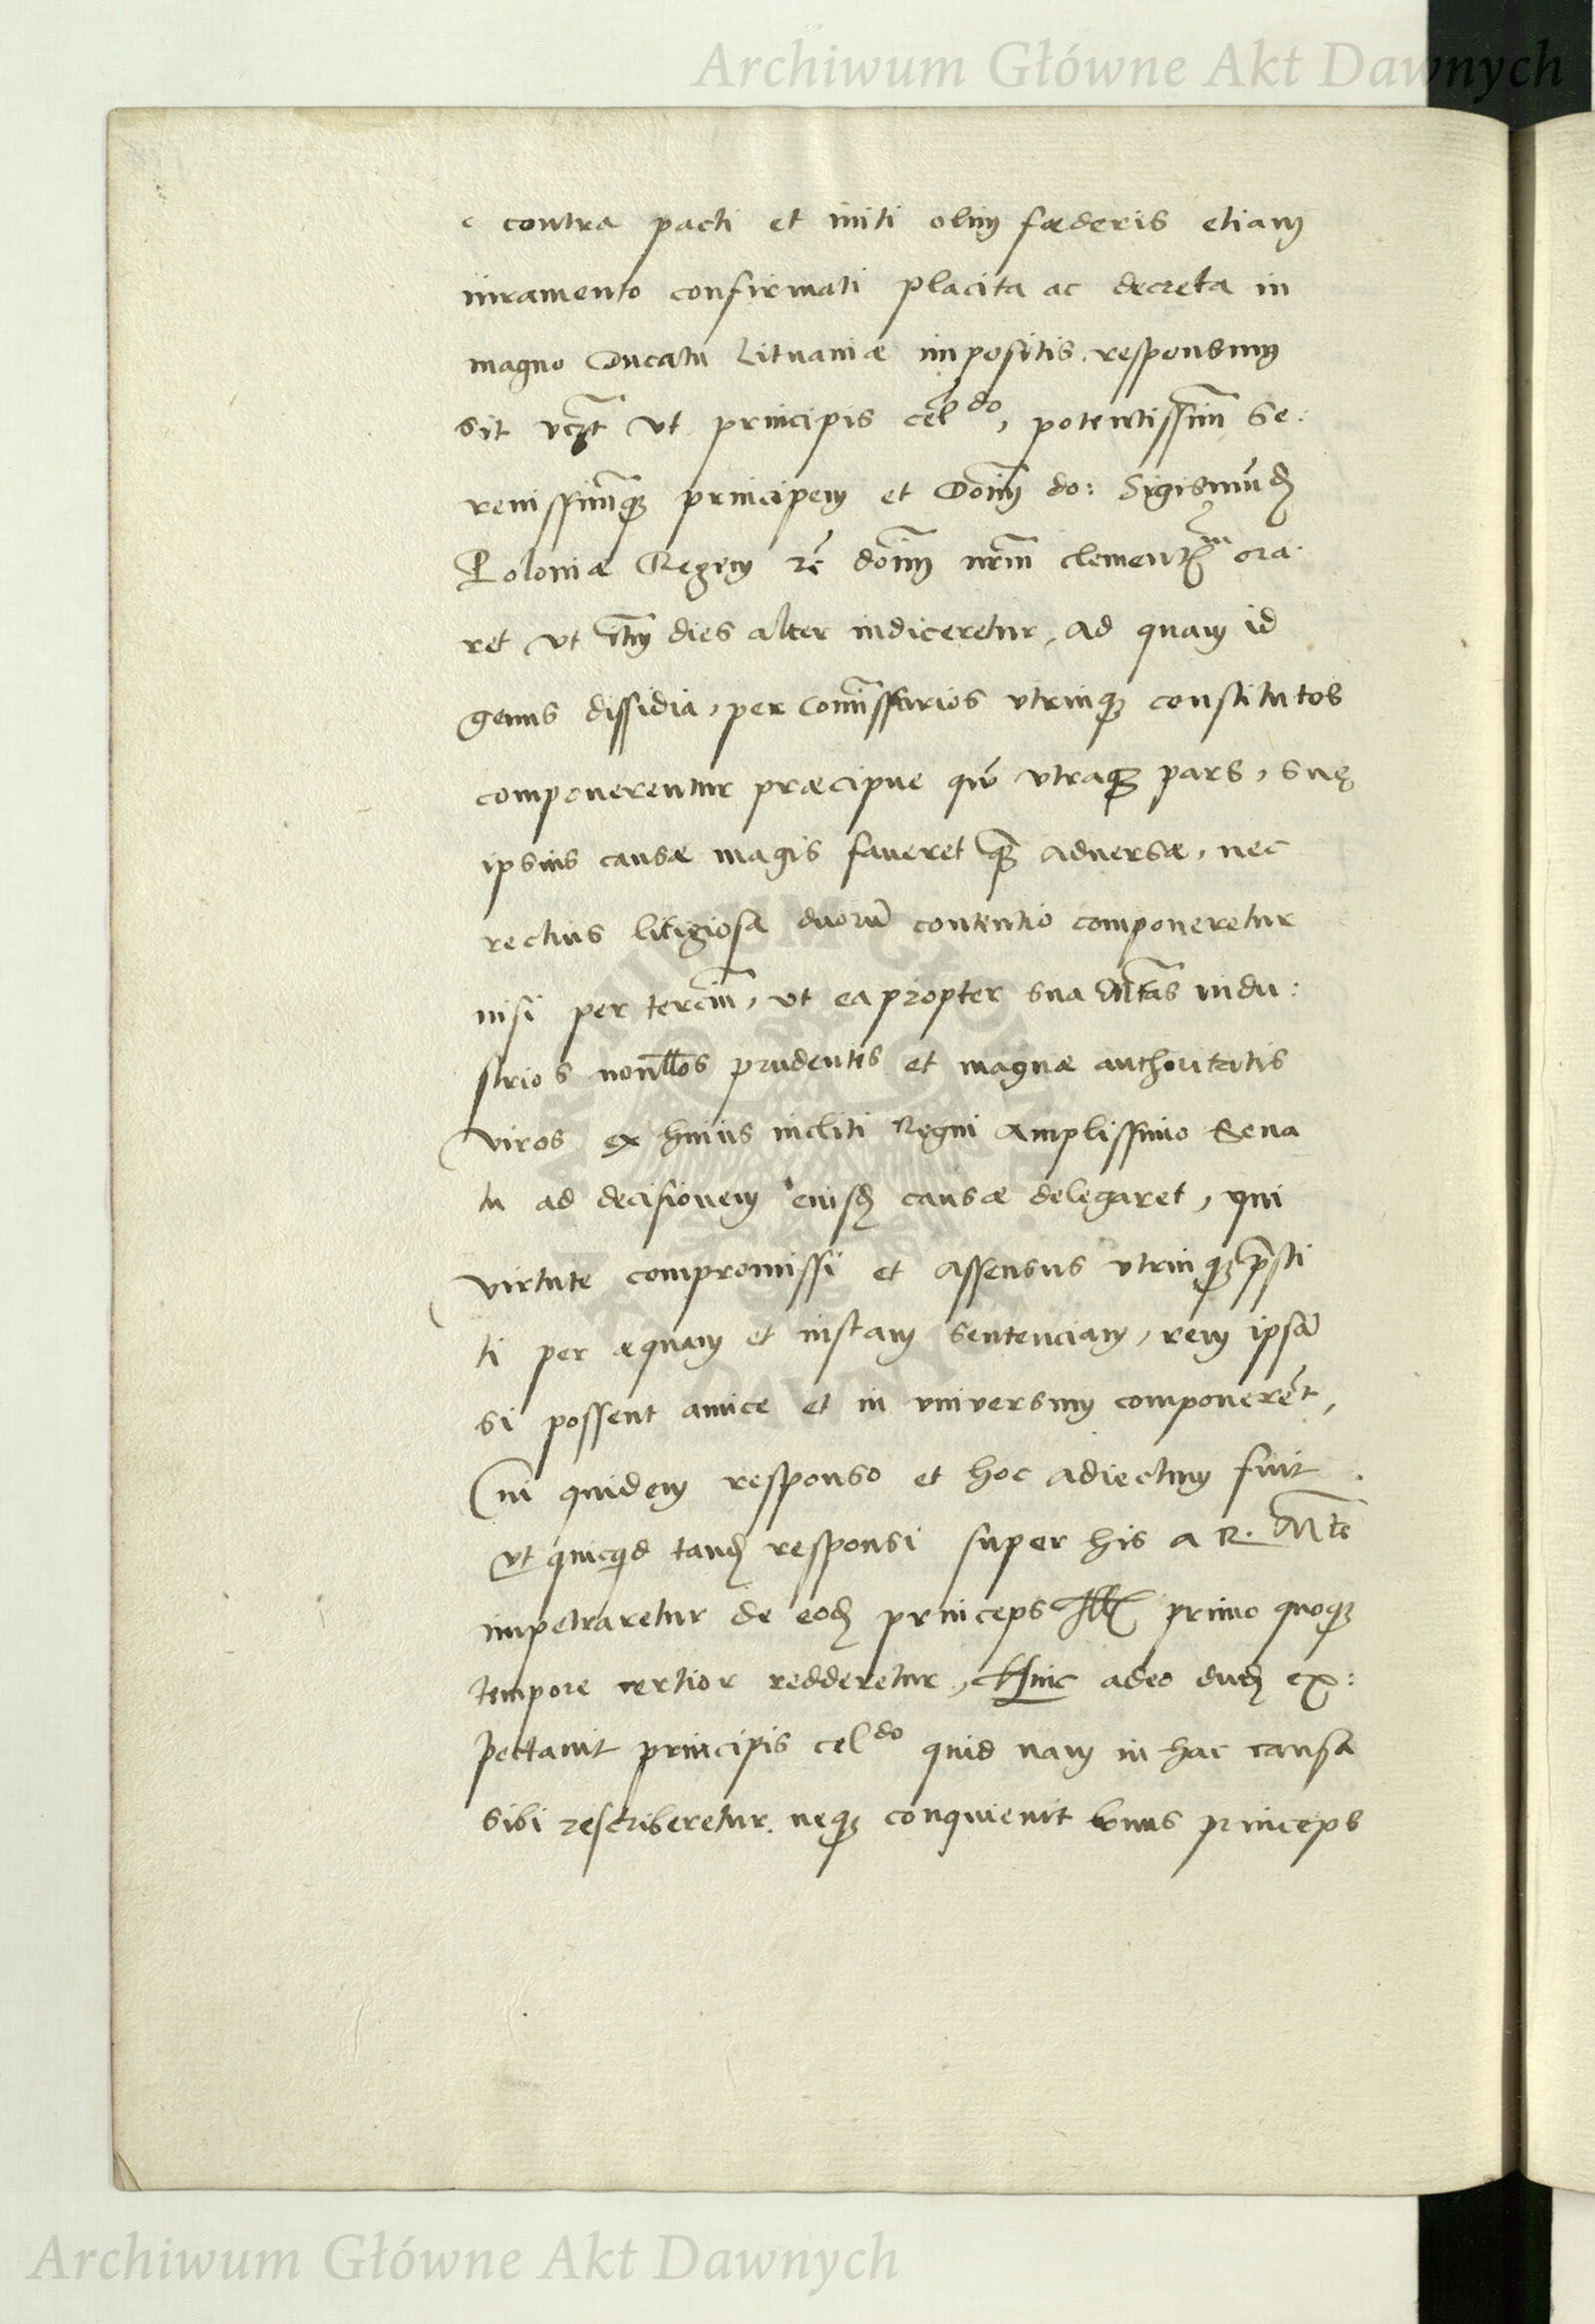 Archiwum Główne Akt Dawnych
c contra pacti et initi olim fœderis etiam
iuramento confirmati placita ac decreta in
magno Ducatu Lituaniæ impositis. responsum
sit vt principis cel^do, potentissim̄ Se:
renissimq; principem et Dom̄ do: Sigismūd
Poloniæ Regem zc̄ dom̄ nr̄m clement^m ora:
ret vt itm̄ dies alter indiceretur, ad quam id
genus dissidia, per Com̄issarios vtrinq; constitutos
componerentur præcipue qū vtraq; pars, suę
ipsius causæ magis faueret q̄ aduersæ, nec
rectius litigiosa duorū contentio componeretur
nisi per terciū, vt ea propter sua Mtās indu:
strios nonllos prudentis et magnæ authoritatis
viros ex huius incliti Regni Amplissimo Sena
tu ad decisionem eiusd causæ delegaret, qui
virtute compromissi et assensus vtrinq; p̄sti
ti per æquam et iustam sentenciam, rem ipsā
si possent amice et in vniversum componerēt,
Cui quidem responso et hoc adiectum fuit.
vt quicqd tand responsi super his a R. Mte
impetraretur de eod princeps Ill primo quoq;
tempore certior redderetur, Hinc adeo dud ex:
pectauit principis cel^do quid nam in hac causa
sibi rescriberetur. neq; conquieuit bonus princeps
Archiwum Główne Akt Dawnych